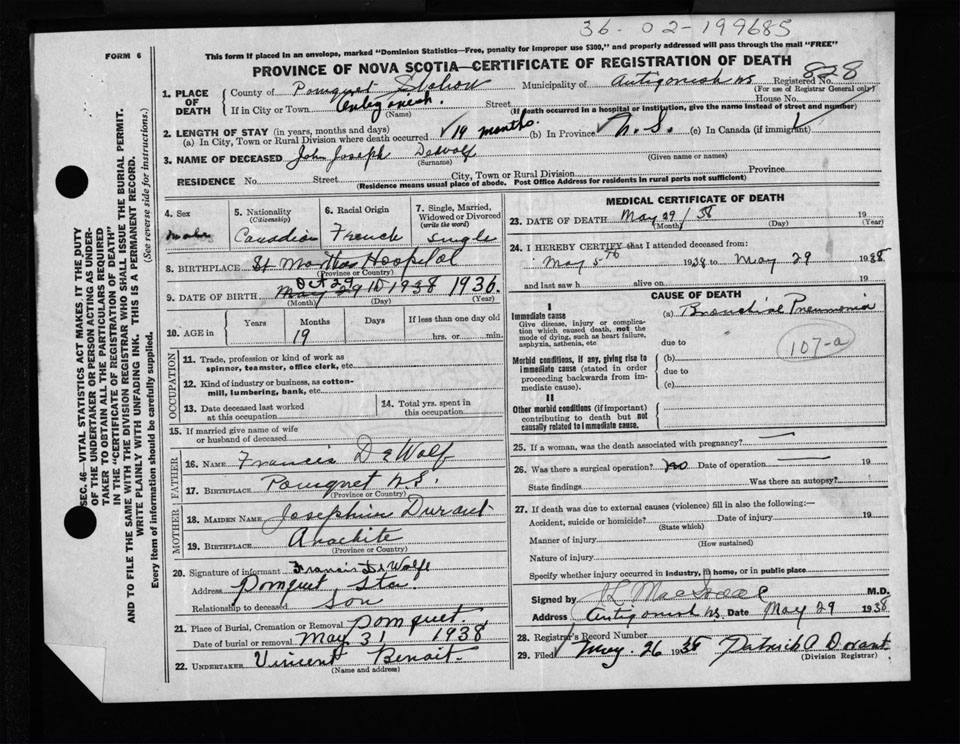 36-02-199685
FORM 6
This form if placed in an envelope, marked "Dominion Statistics—Free, penalty for improper use $300," and properly addressed will pass through the mail "FREE"
PROVINCE OF NOVA SCOTIA—CERTIFICATE OF REGISTRATION OF DEATH
1. PLACE OF DEATH
County of Pomquet Station Municipality of Antigonish NS Registered No. 828
(For use of Registrar General only)
If in City or Town Antigonish. Street House No.
(Name) (If death occurred in a hospital or institution, give the name instead of street and number)
2. LENGTH OF STAY (in years, months and days)
(a) In City, Town or Rural Division where death occurred 19 months. (b) In Province N.S. (c) In Canada (if immigrant)
3. NAME OF DECEASED John Joseph DeWolf
(Surname) (Given name or names)
RESIDENCE No. Street City, Town or Rural Division Province
(Residence means usual place of abode. Post Office Address for residents in rural parts not sufficient)
4. Sex
male
5. Nationality
(Citizenship)
Canadian
6. Racial Origin
French
7. Single, Married, Widowed or Divorced
(write the word)
Single
8. BIRTHPLACE St Marthas Hospital
(Province or Country)
Oct 29
9. DATE OF BIRTH May 29 1938 1936.
(Month) (Day) (Year)
10. AGE in Years Months Days If less than one day old
19 hrs. or min.
OCCUPATION
11. Trade, profession or kind of work as
spinner, teamster, office clerk, etc.
12. Kind of industry or business, as cotton-
mill, lumbering, bank, etc.
13. Date deceased last worked
at this occupation
14. Total yrs. spent in
this occupation
15. If married give name of wife
or husband of deceased
FATHER
16. NAME Francis DeWolf
17. BIRTHPLACE Pomquet N.S.
(Province or Country)
MOTHER
18. MAIDEN NAME Josephine Durant
19. BIRTHPLACE
(Province or Country)
20. Signature of informant Francis DeWolfe
Address Pomquet Sta.
Relationship to deceased Son
21. Place of Burial, Cremation or Removal Pomquet.
Date of burial or removal May 31 1938
22. UNDERTAKER Vincent Benoit.
MEDICAL CERTIFICATE OF DEATH
23. DATE OF DEATH May 29 / 38 19
(Month) (Day) (Year)
24. I HEREBY CERTIFY that I attended deceased from:
May 5th 1938 to May 29 1938
and last saw h alive on 19
CAUSE OF DEATH
I
Immediate cause
Give disease, injury or complica-
tion which caused death, not the
mode of dying, such as heart failure,
asphyxia, asthenia, etc.
(a) Bronchial Pneumonia
due to
107-a
Morbid conditions, if any, giving rise to
immediate cause (stated in order
proceeding backwards from im-
mediate cause).
(b)
due to
(c)
II
Other morbid conditions (if important)
contributing to death but not
causally related to immediate cause.
25. If a woman, was the death associated with pregnancy?
26. Was there a surgical operation? No Date of operation 19
State findings Was there an autopsy?
27. If death was due to external causes (violence) fill in also the following:—
Accident, suicide or homicide? Date of injury 19
(State which)
Manner of injury
(How sustained)
Nature of injury
Specify whether injury occurred in industry, in home, or in public place
Signed by M.D.
Address Antigonish NS. Date May 29 1938
28. Registrar's Record Number
29. Filed May. 26 1938 Patrick A Dorant
(Division Registrar)
SEC. 46—VITAL STATISTICS ACT MAKES IT THE DUTY
OF THE UNDERTAKER OR PERSON ACTING AS UNDER-
TAKER TO OBTAIN ALL THE PARTICULARS REQUIRED
IN THE "CERTIFICATE OF REGISTRATION OF DEATH"
AND TO FILE THE SAME WITH THE DIVISION REGISTRAR WHO SHALL ISSUE THE BURIAL PERMIT.
WRITE PLAINLY WITH UNFADING INK. THIS IS A PERMANENT RECORD.
Every item of information should be carefully supplied. (See reverse side for instructions.)